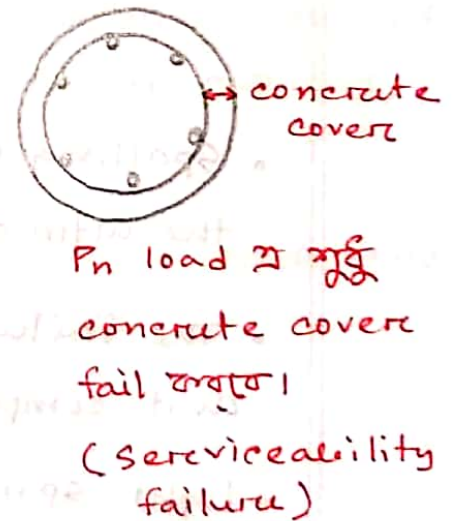 concrete
cover
Pn load এ শুধু
concrete cover
fail করবে।
(serviceability
failure)